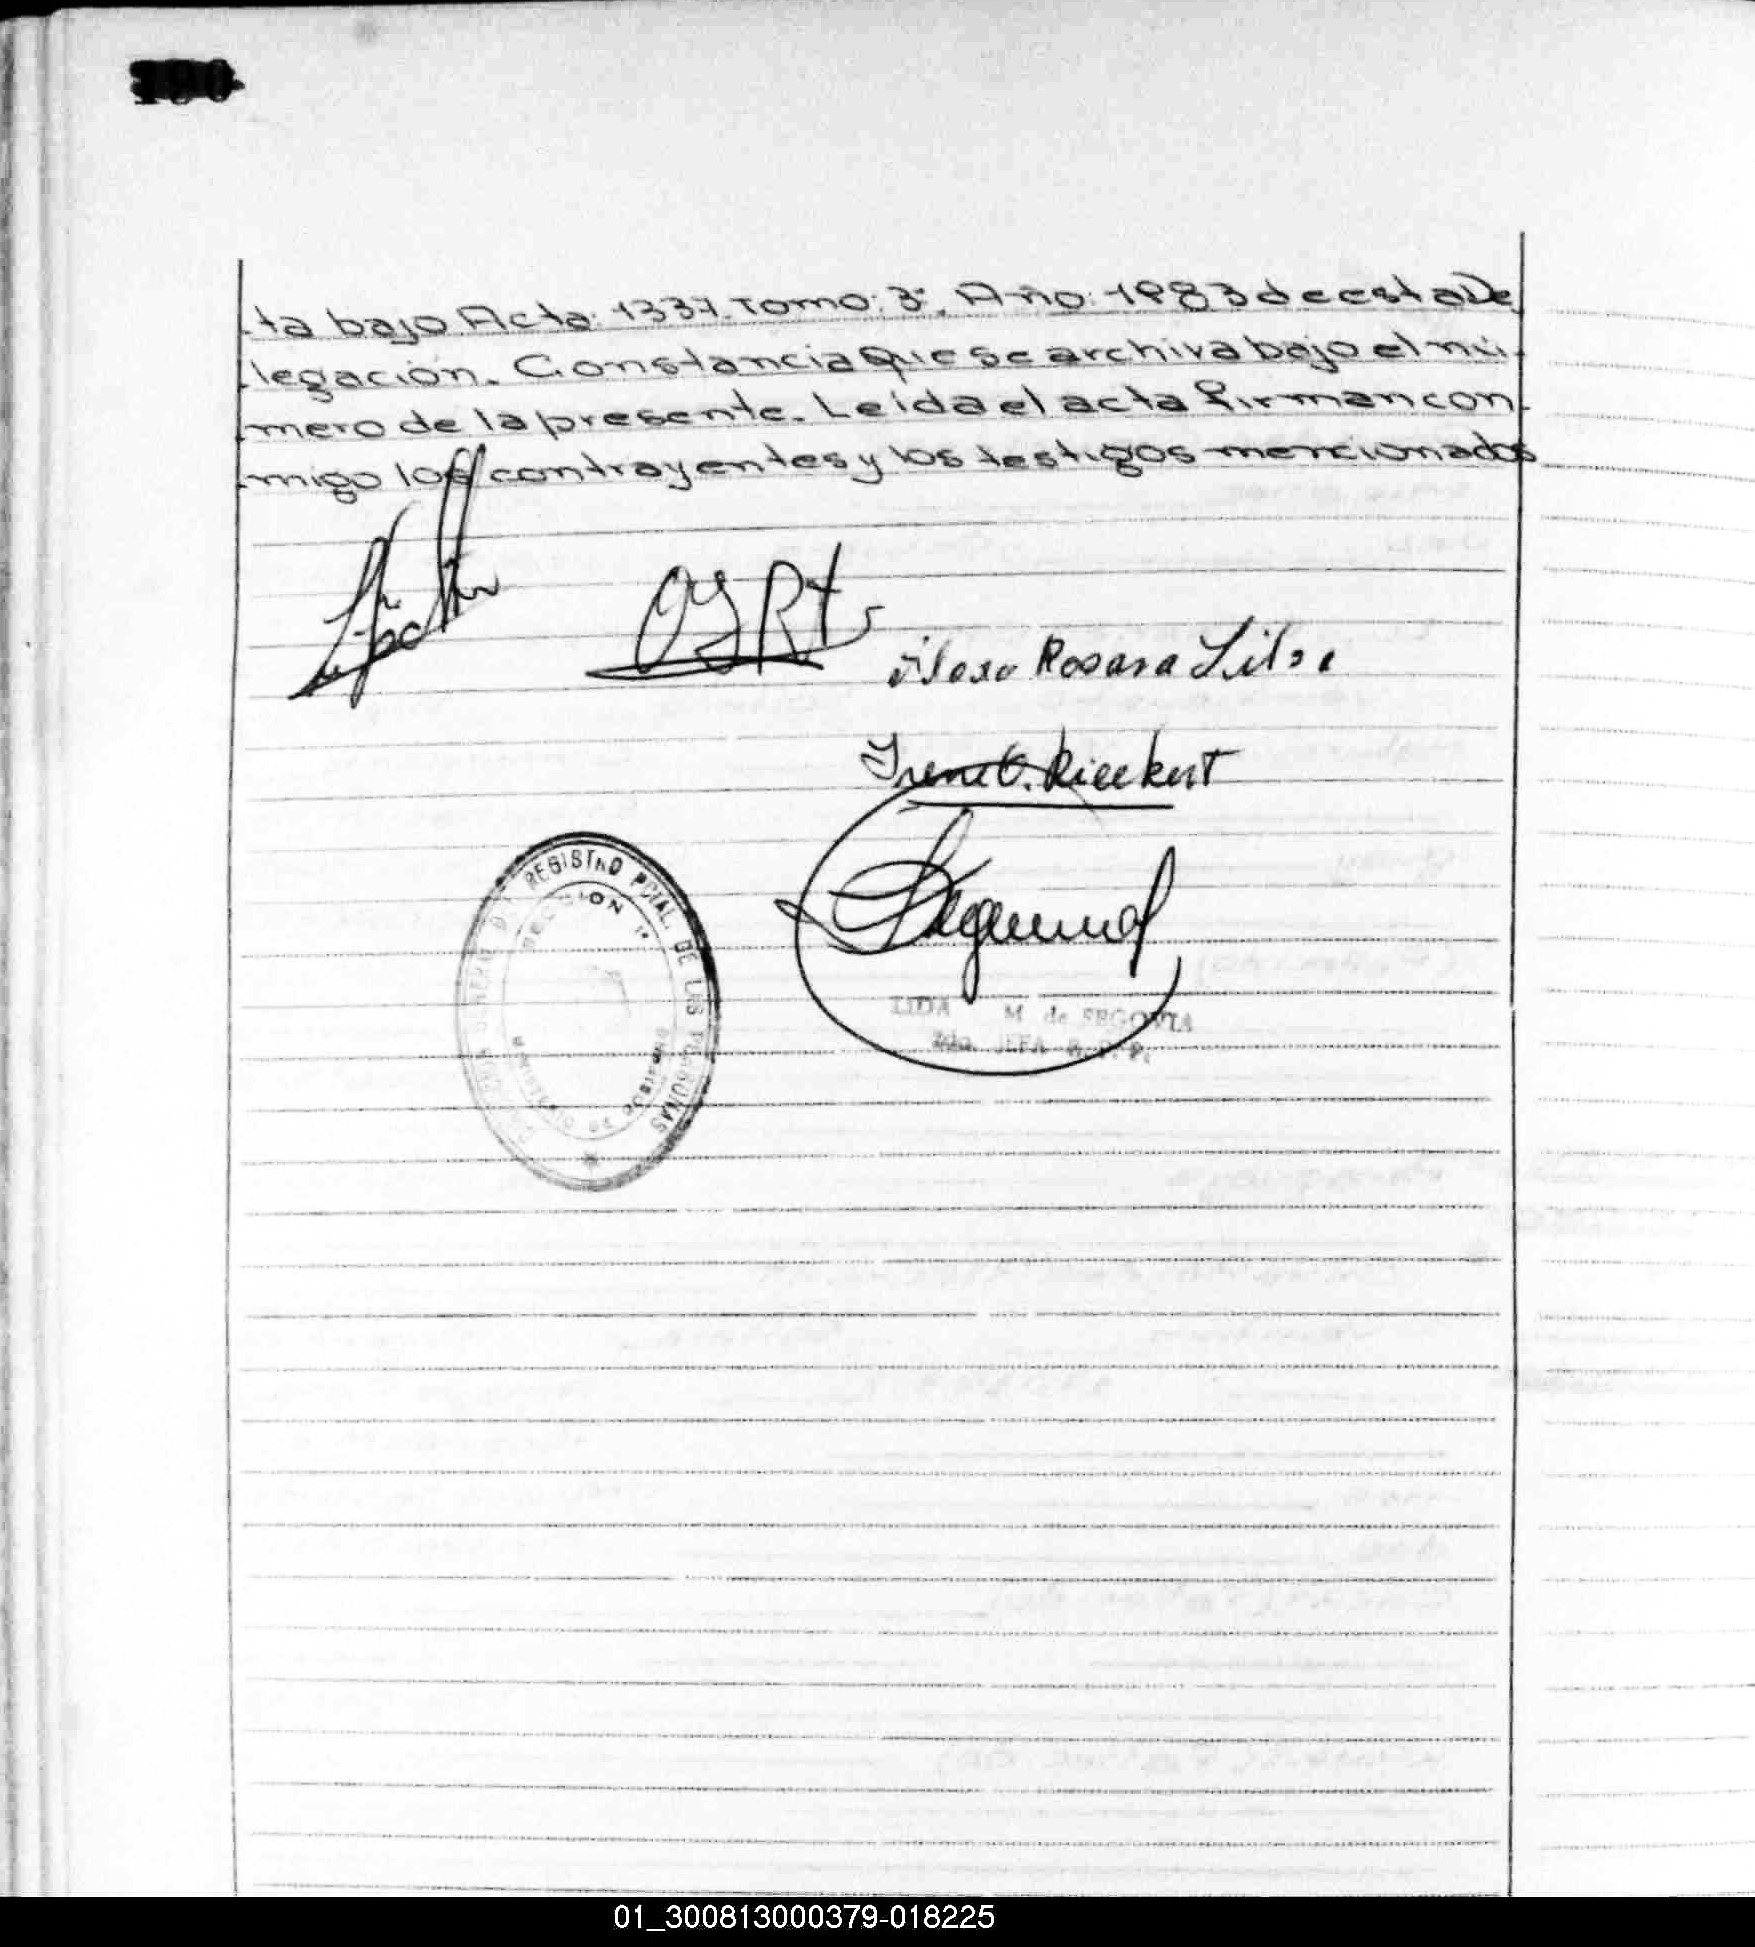 ta bajo Acta: 1337. Tomo: 3º. Año: 1983 de esta De
legación. Constancia que se archiva bajo el nú-
mero de la presente. Leída el acta firman con-
migo los contrayentes y los testigos mencionados
Rosana Silva
Irene O. Rieckert
REGISTRO PCIAL. DE LAS PERSONAS
SECCION 1ª
LIDA M de SEGOVIA
2da. JEFA R. P. P.
01_300813000379-018225